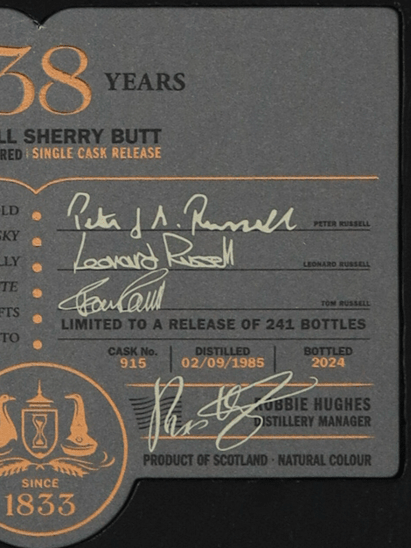 38 YEARS
LL SHERRY BUTT
RED | SINGLE CASK RELEASE
OLD
Peter J A. Russell
PETER RUSSELL
SKY
LLY
Leonard Russell
LEONARD RUSSELL
TE
FTS
TOM RUSSELL
TO
LIMITED TO A RELEASE OF 241 BOTTLES
CASK No. DISTILLED BOTTLED
915 02/09/1985 2024
ROBBIE HUGHES
DISTILLERY MANAGER
PRODUCT OF SCOTLAND · NATURAL COLOUR
SINCE
1833